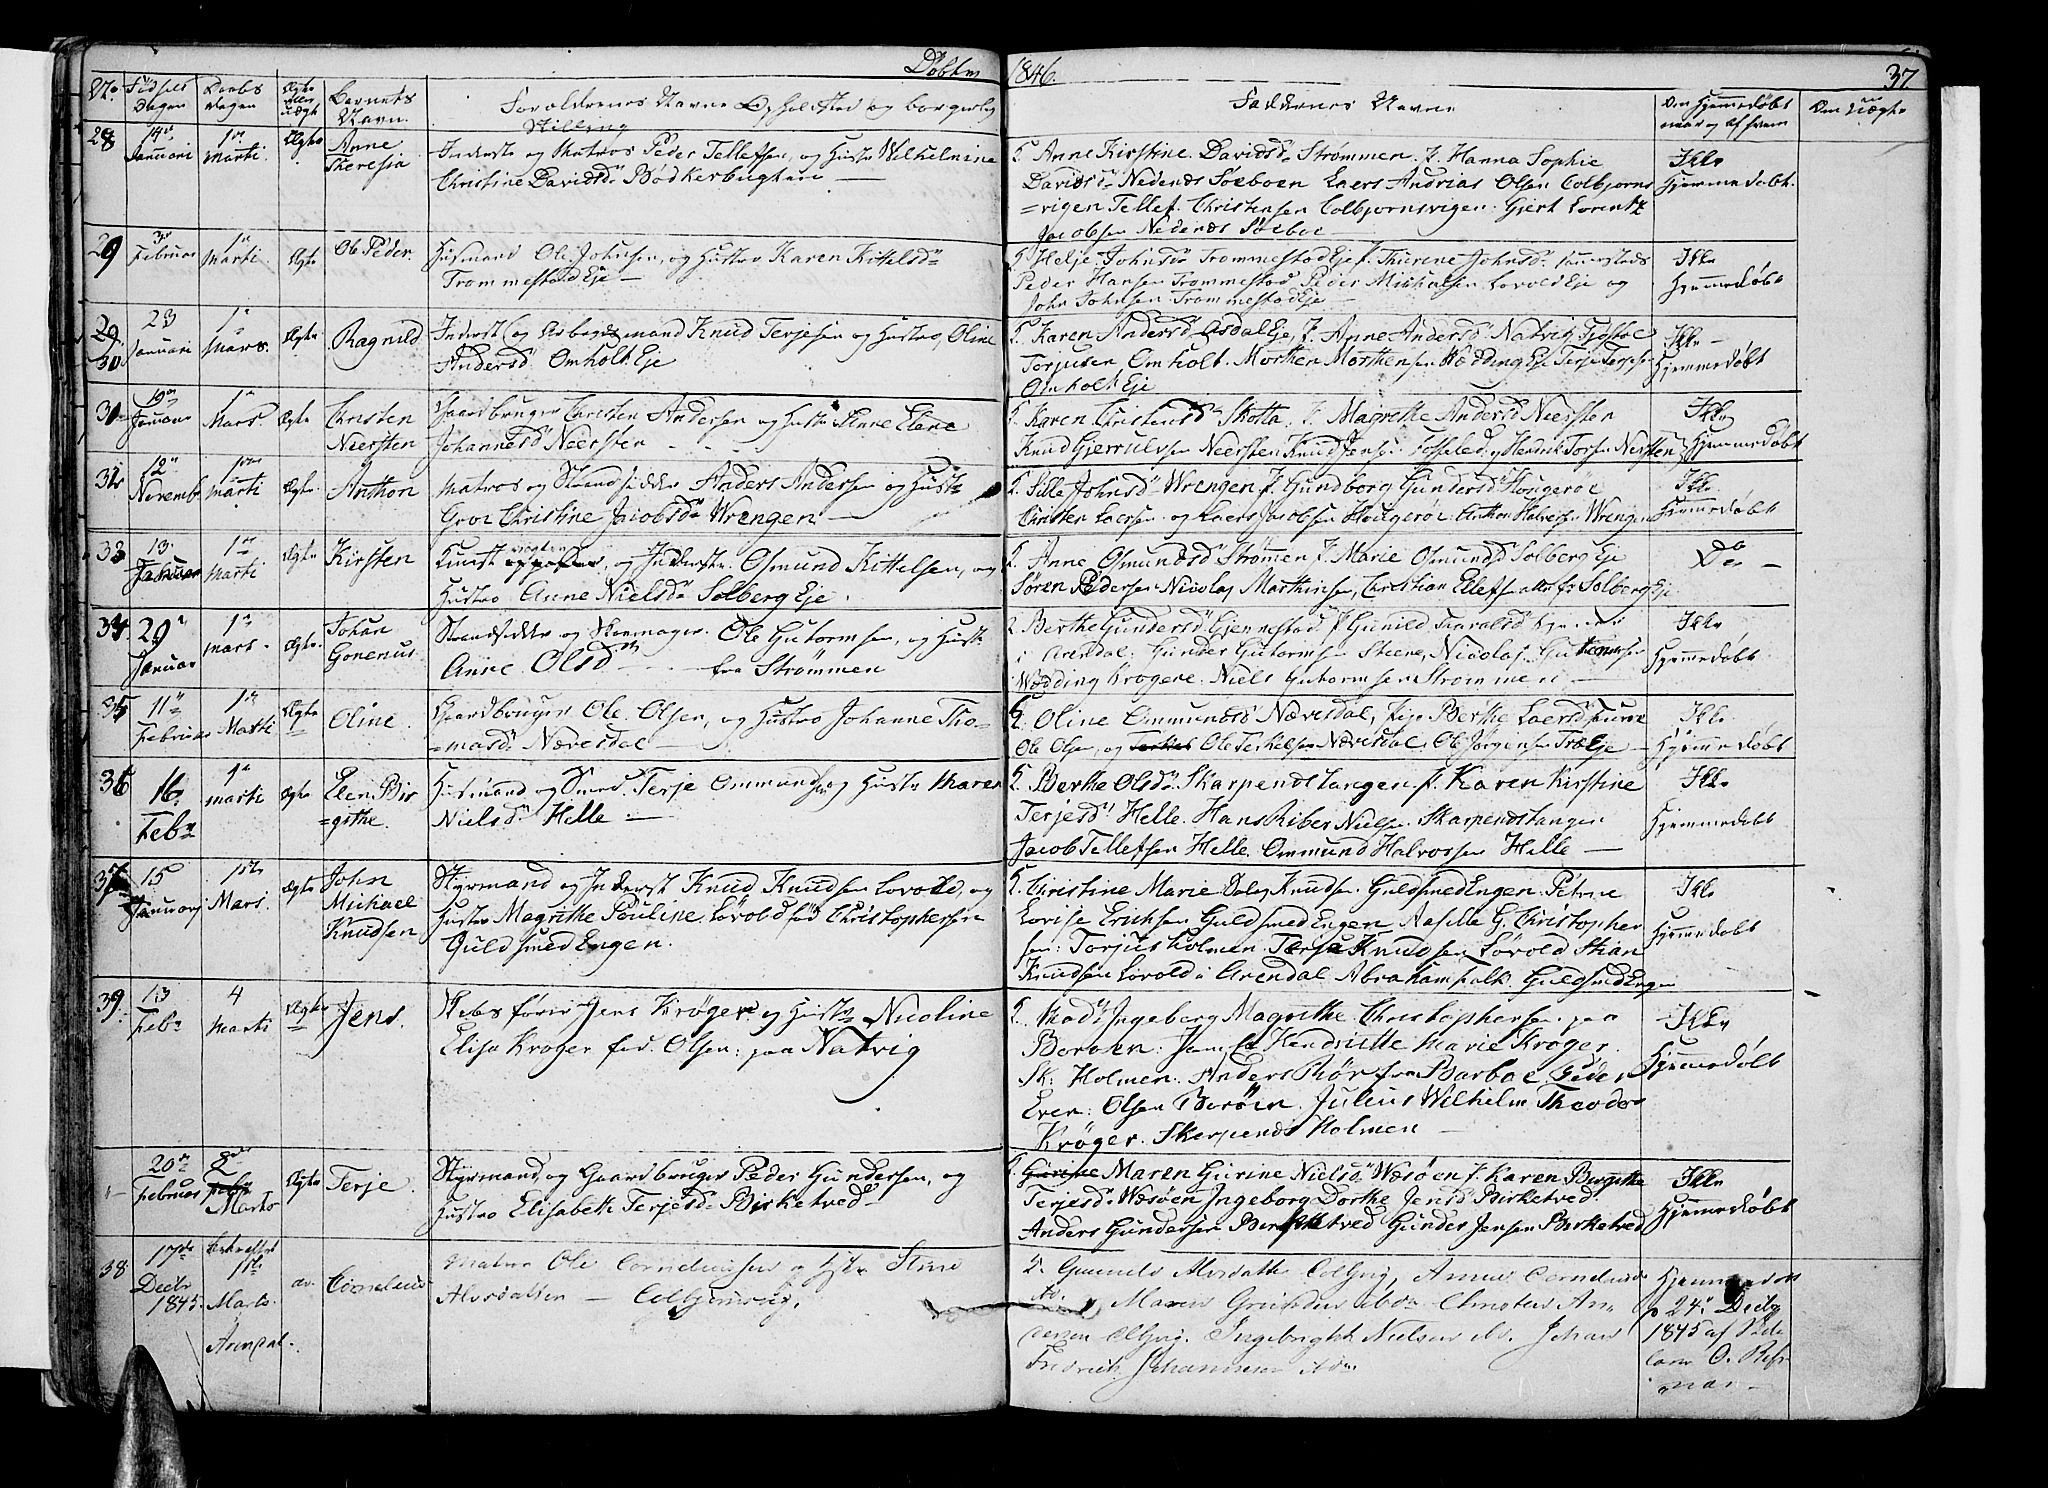 Døbte 1846. 37
No. Fødsels Dagen Daabs dagen Ægte eller uægte Barnets Navn. Forældrenes Navne Opholdsted og borgerlig Stilling
Faddernes Navne Om Hjemmedøbt naar og af hvem Om Uægte
28 14de Januari 1ste Marti. Ægte Anne Theresia
Inderste og Matros Peder Tellefsen, og Hustr Wilhelmine
Christine Davidsd Bødkerbugten —
Anne Kirstine Davidsd Strømmen. J. Hanna Sophie
Davidsd Nedenæs Søeboen Laers Andrias Olsen Colbjorns
=vigen Tellef Christensen Colbjornsvigen. Gjert Lorentz
Jacobsen Nedenæs Søeboe
Ikke Hjemmedøbt.
29 3de Februar 1te Marti. Ægte Ole Peder.
Husmand Ole Johnsen, og Hustro Karen Kittelsd
Trommestad Eje —
Helje Johnsd Trommestad Eje J. Thurine Johnsd
Peder Hansen Trommestad Peder Michalsen Lovold Eje og
John Johnsen Trommestad Eje —
Ikke Hjemmedøbt
29 30. 23 Januari 1te Mars. Ægte Ragnild
Inderst og Arbeidsmand Knud Terjesen og Hustro, Oline
Andersd Omholt Eje
Karen Andersd Asdal Eje, J. Anne Andersd Natvig,
Torjusen Omholt. Morthen Morthensen Wædding Eje Terje Terjesen
Omholt Eje
Ikke — Hjemmedøbt
31 19de Januar 1te Mars. Ægte Christen Neersten
Gaardbruger Christen Andersen og Hustr Anne Elene
Johannesd Neersten
Karen Christensd Skotta, J. Magrethe Andersd Neersten
Knud Gjerrulvsen Neersten Knud Jensen Fosseled, og Henrik Torsen Neersten
Ikke Hjemmedøbt
32 12te Novembr 1ste Marti Ægte Anthon
Matros og Strandsidder Anders Andersen og Hustr
Groe Christine Jacobsd Wrengen —
Sille Johnsd Wrengen J. Gundborg Gundersd Hougerøe
Christen Laersen og Laers Jacobsen Hougerøe. Anthon Halvorsen Wrengen
Ikke Hjemmedøbt
33 13. Februar 1te Marti Ægte Kirsten
og Inderste. Osmund Kittelsen, og
Hustro Anne Nielsd Solberg Eje.
Anne Osmundsd Strømmen J. Marie Osmundsd Solberg Eje
Søren Pedersen Nicolaj Marthinsen, Christian Ellefsen alle fr Solberg Eje
Do —
34 29 Januar 1te Mars. Ægte. Johan Gonerius
Strandsidder og Skomager. Ole Gutormsen, og Hustr
Anne Olsd — fra Strømmen
Berthe Gundersd Gjennestad J Gunild Taraldsd
i Arendal. Gunder Gutormsen Steene, Nicolaj Gutormsen
Wædding Krogere. Niels Gutormsen Strømmen —
Ikke Hjemmedøbt.
35 11te Februar 1te Marti Ægte Oline.
Gaardbruger Ole Olsen, og Hustro Johanne Tho=
=masd Næresdal —
Oline Ommundsd Næresdal, Pige Berthe Laersd
Ole Olsen, og Ole Terkelsen Næresdal, Ole Jørgensen Træ Eje —
Ikke Hjemmedøbt
36 16. Febr 1te Marti Ægte Elen Bir =githe.
Husmand og Smed. Terje Ommundsen og Hustr Maren
Nielsd Helle —
Berthe Olsd Skarpenes tangen J. Karen Kirstine
Terjesd Helle. Hans Riber Nielsen Skarpenstangen
Jacob Tellefsen Helle. Ommund Halvorsen Helle —
Ikke Hjemmedøbt
37 15 Januarj 1ste Mars. Ægte John Michael Knudsen
Styrmand og Inderst Knud Knudsen Lovold, og
Hustr Magrethe Pauline Lövold fød Christophersen
Guldsmed Engen.
Christine Marie Knudsen. Guldsmed Engen. Petrine
Lovise Eriksen Guldsmed Engen Aasille G. Christopher
sen: Torjusholmen. Terje Knudsen Lövold Stian
Knudsen Lovold i Arendal Abraham Falk Guldsmed Engen
Ikke Hjemmedøbt
39 13 Febr 4 Marts Ægte Jens.
Skibsfører Jens Krøger og Hustr Nicoline
Elisa Kroger fød. Olsen: paa Natvig
Mad Ingeborg Magrethe Christophersen. paa
Boroen: Jomf Hendriette Marie Krøger.
Sk: Holmen. Anders Rör fra Barboe. Peder
Even: Olsen Boröen. Julius Wilhelm Theodor
Krøger. Skerpenes Holmen —
Ikke Hjemmedøbt
— 20de Februar 2den Marts Ægte Terje.
Styrmand, og Gaardbruger Peder Gundersen, og
Hustro Elisabeth Terjesd Birketved
Maren Girine Nielsd Wæsöen J. Karen Birgithe
Terjesd Wæsöen Ingeborg Dorthe Jensd Birketved
Anders Gundersen Birketved Gunder Jensen Birketved
Ikke Hjemmedøbt
38 17de Decbr 1845. Bekræftet 1ste Marts. Arendal. do. Cornelius
Matros Ole Corneliussen og Hstr Stine
Alvsdatter — Colbjørnsvig.
Gunnild Alvsdatter Colbjvig, Anne Cornelius
do. Maren Gundersd ibd. Christen An
dersen Colbjvig. Ingebrigt Nielsen do. Johan
Fredrich Johannsen ibd.
Hjemmedøbt
24de Decbr
1845 af